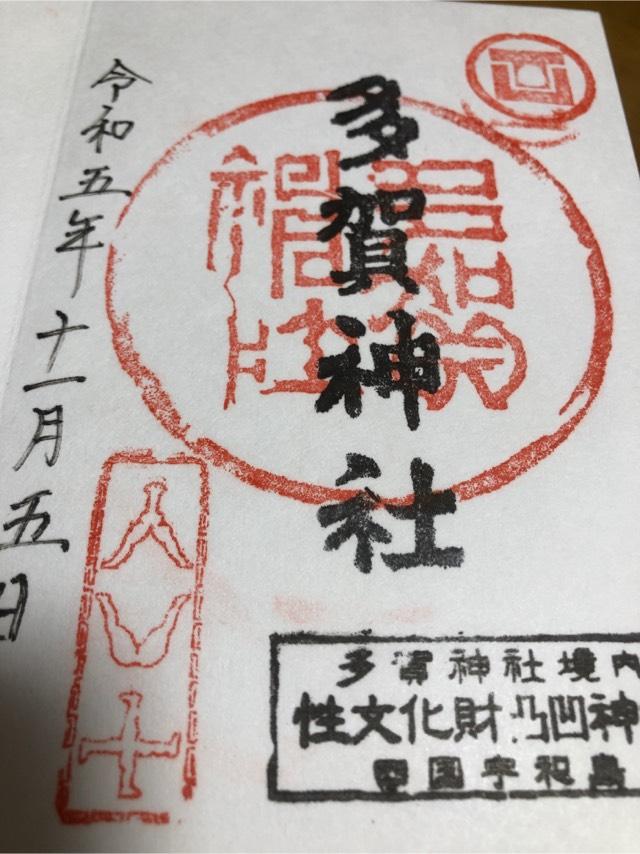 多賀神社
令和五年十一月五日
多賀神社境内
性文化財凸凹神
四国宇和島